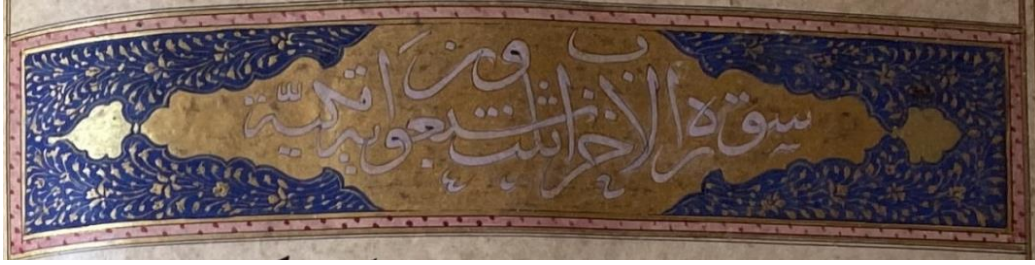 سورة الاحزاب ثلث وسبعون اية